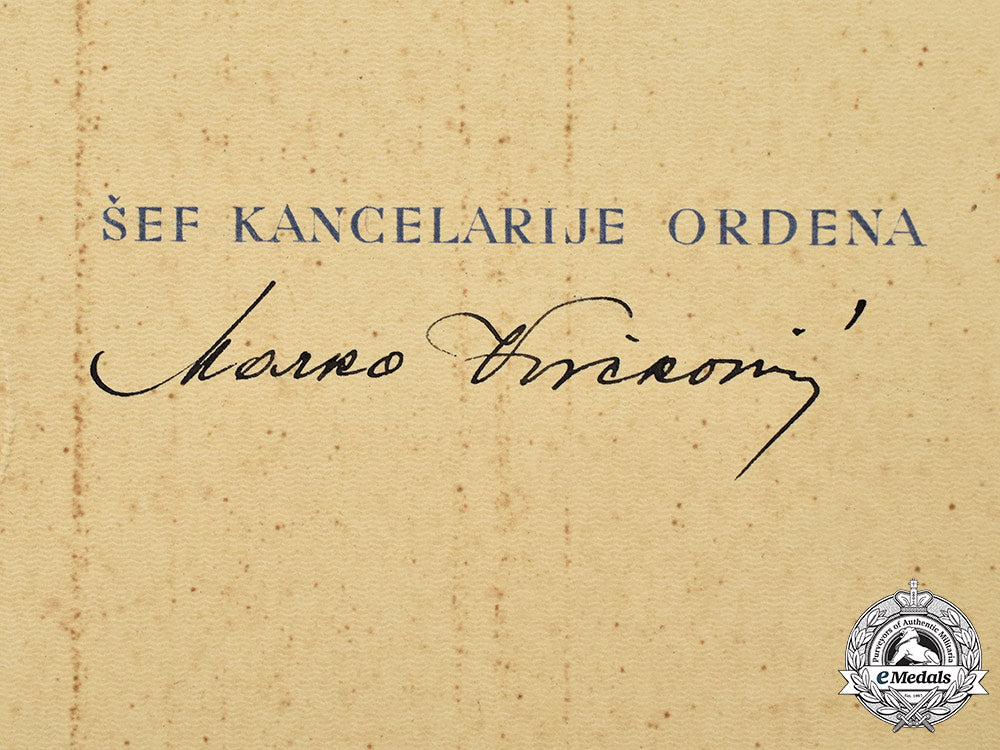 ŠEF KANCELARIJE ORDENA
Marko
Purveyors of Authentic Militaria
eMedals
Est. 1967